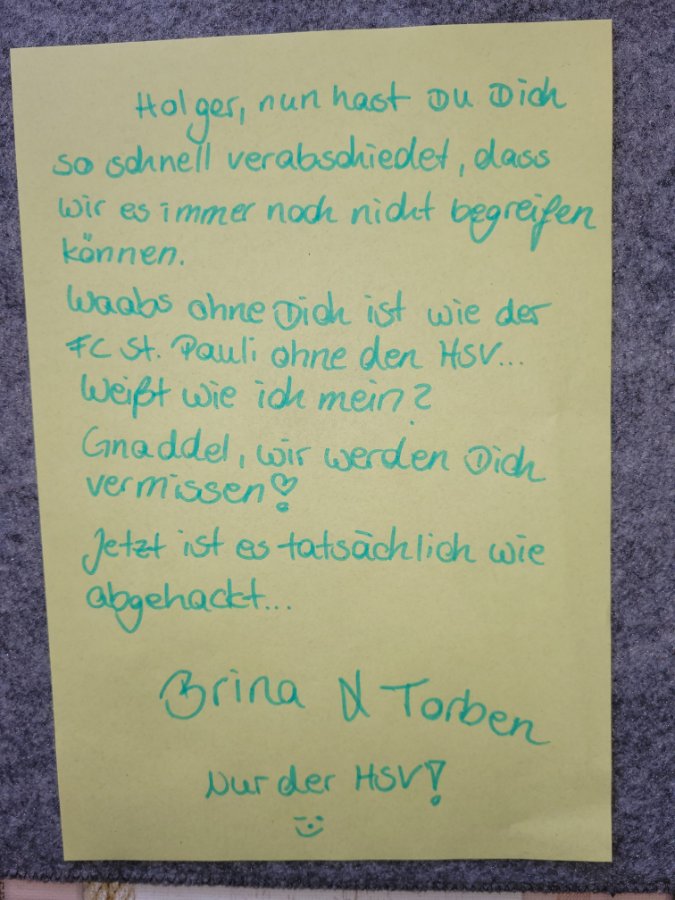 Holger, nun hast Du Dich
so schnell verabschiedet, dass
wir es immer noch nicht begreifen
können.
Waabs ohne Dich ist wie der
FC St. Pauli ohne den HSV...
Weißt wie ich mein?
Gnaddel, wir werden Dich
vermissen!
Jetzt ist es tatsächlich wie
abgehackt...
Brina & Torben
Nur der HSV!